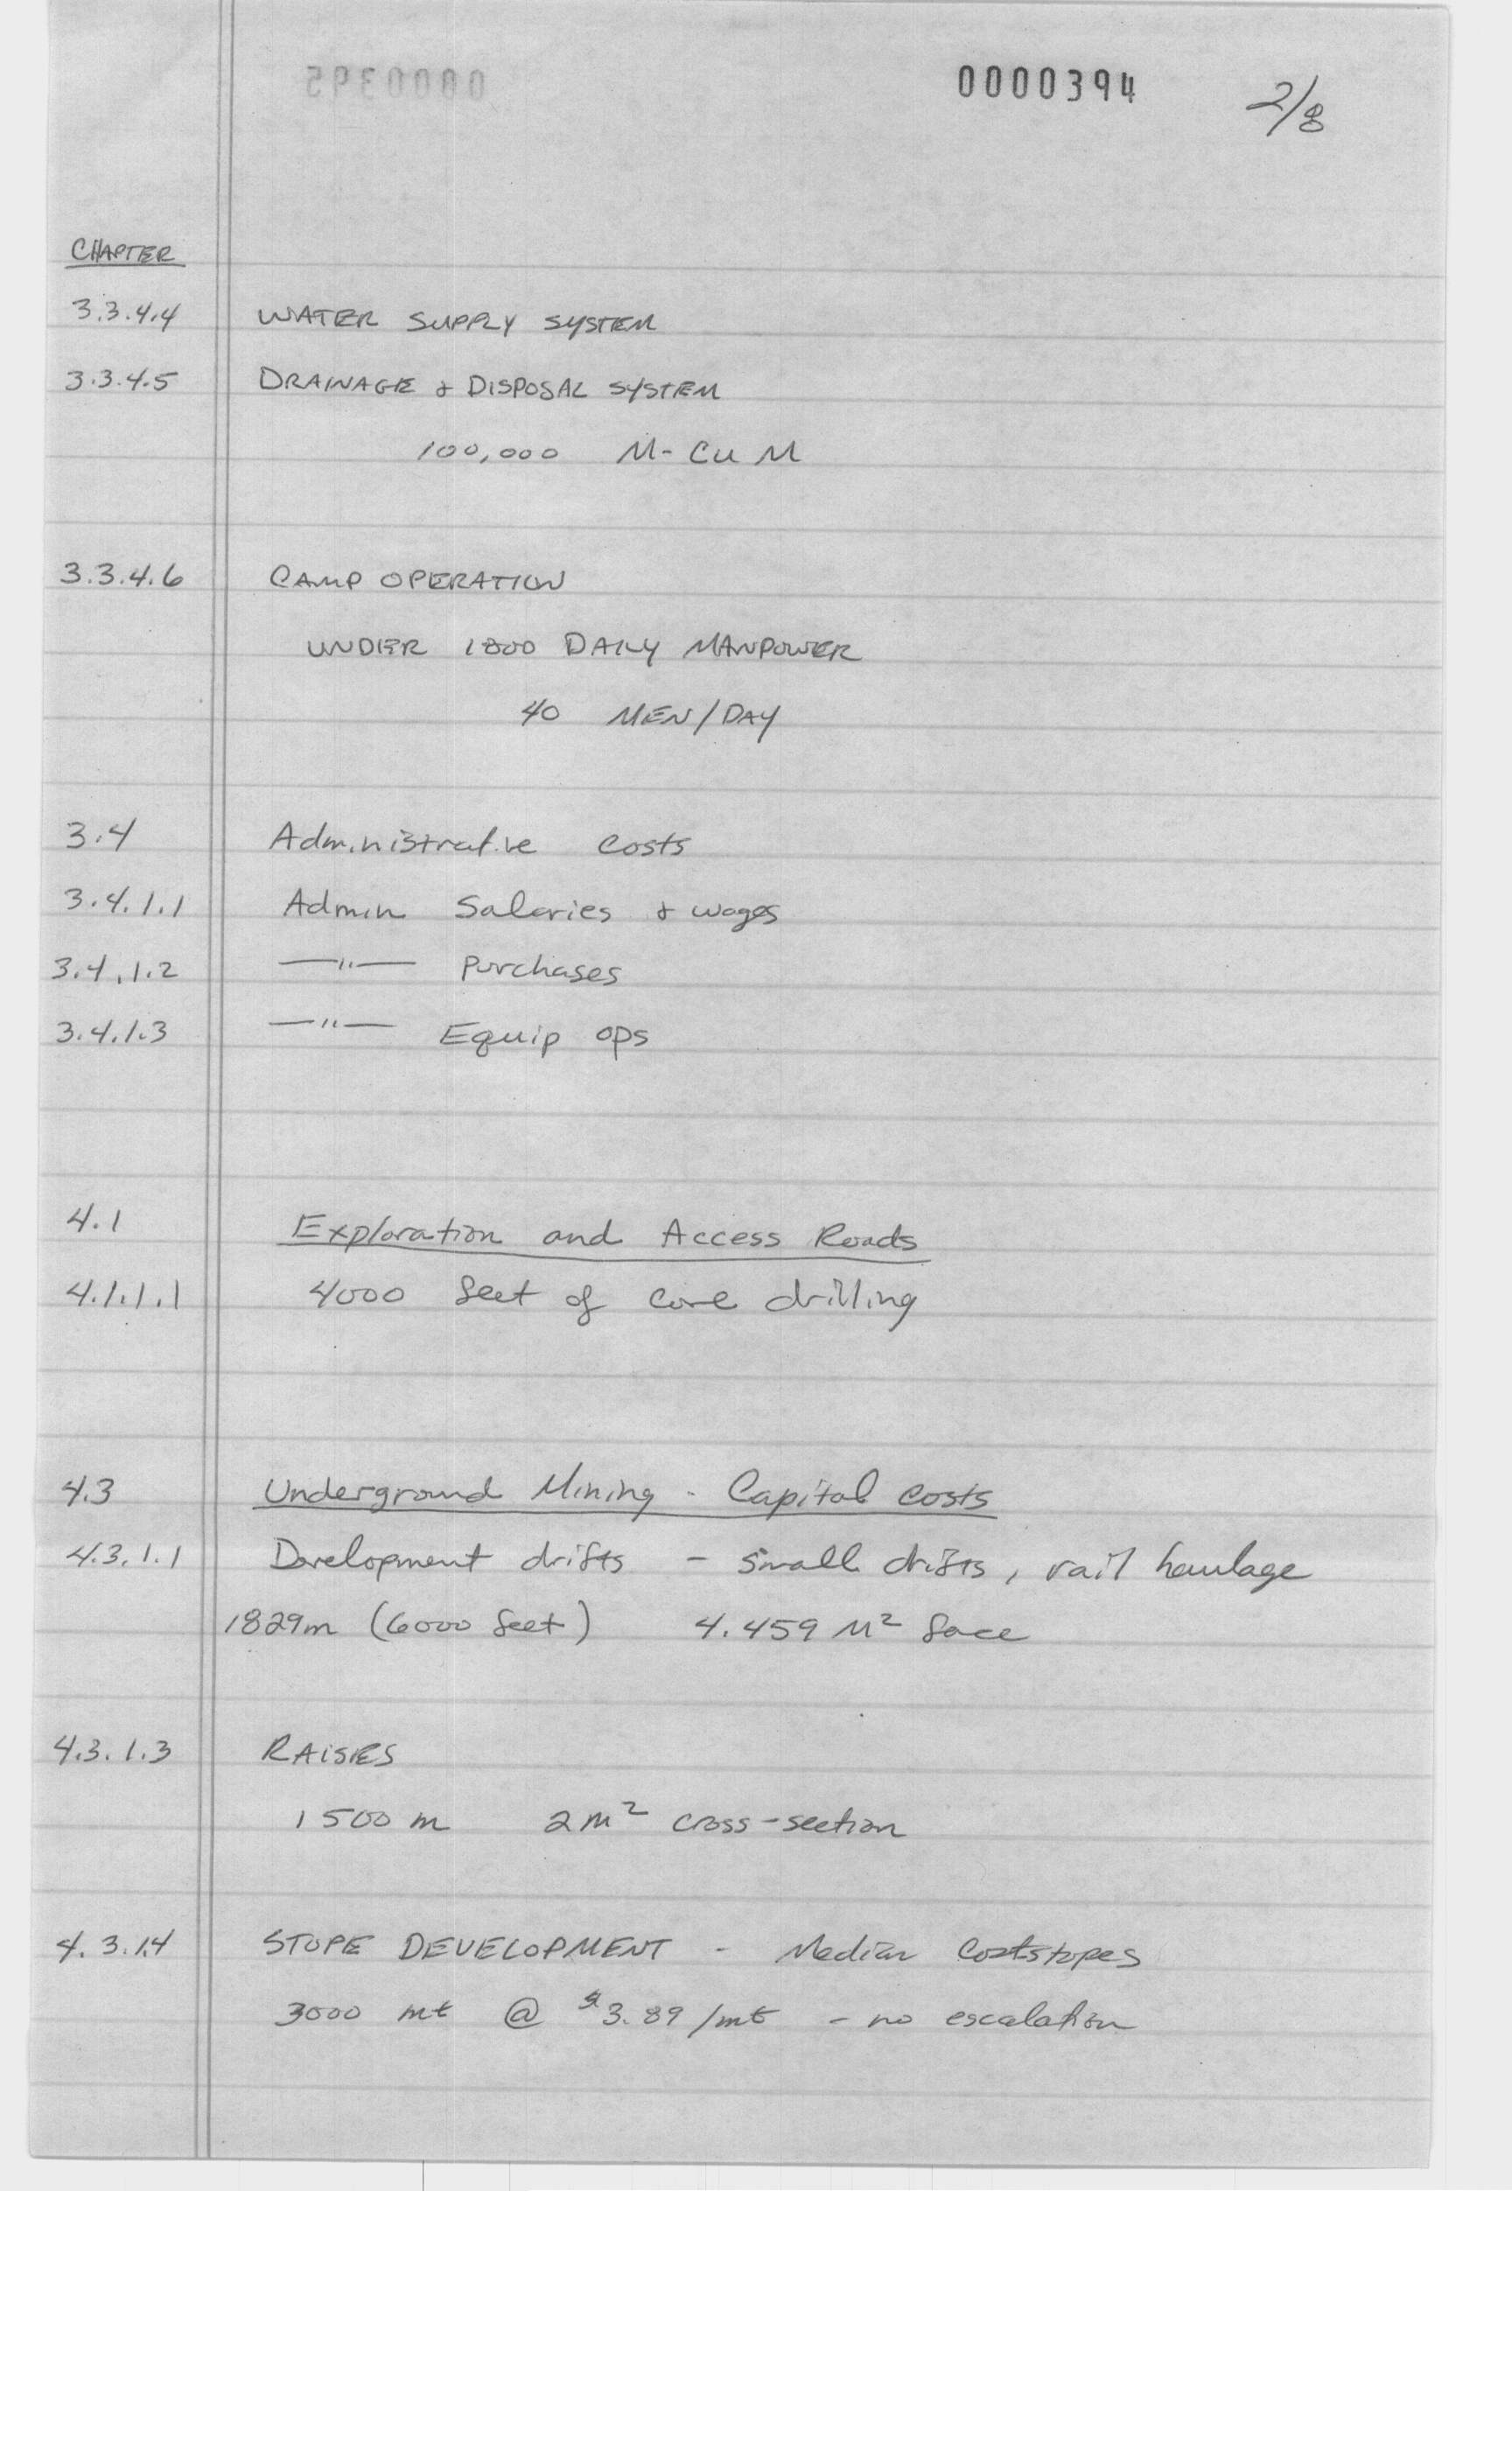 0000394 2/8
CHAPTER
3.3.4.4 WATER SUPPLY SYSTEM
3.3.4.5 DRAINAGE & DISPOSAL SYSTEM
100,000 M- Cu M
3.3.4.6 CAMP OPERATION
UNDER 1800 DAILY MANPOWER
40 MEN/DAY
3.4 Administrative Costs
3.4.1.1 Admin Salaries & wages
3.4.1.2 —"— Purchases
3.4.1.3 —"— Equip ops
4.1 Exploration and Access Roads
4.1.1.1 4000 feet of core drilling
4.3 Underground Mining - Capital Costs
4.3.1.1 Development drifts - small drifts, rail haulage
1829m (6000 feet) 4.459 M² face
4.3.1.3 RAISES
1500 m 2m² cross-section
4.3.1.4 STOPE DEVELOPMENT - Median
3000 mt @ $3.89/mt - no escalation